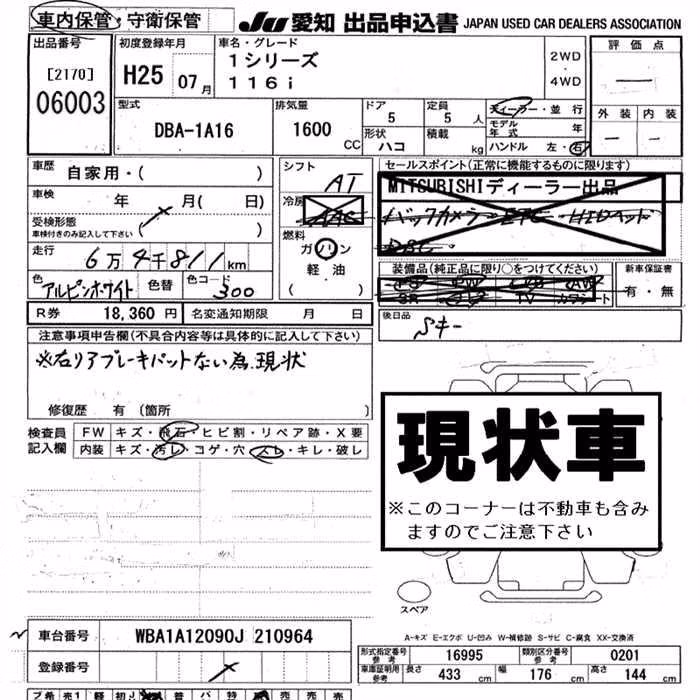 車内保管・守衛保管 JU 愛知 出品申込書 JAPAN USED CAR DEALERS ASSOCIATION
出品番号 初度登録年月 車名・グレード 評価点
[2170] H25 07月 1シリーズ 2WD ・ 4WD —
06003 116i
型式 排気量 ドア 定員 ディーラー・並行 外装 内装
DBA-1A16 1600CC 5 5人 モデル年式 年 — —
形状 ハコ 積載 kg ハンドル 左・右
車歴 自家用・( ) シフト AT セールスポイント(正常に機能するものに限ります)
MITSUBISHIディーラー出品
車検 年 月( 日) 冷房 AAC バックカメラ ETC HIDヘッド
受検形態 DSC
車検付きのみ記入して下さい ( )
燃料
走行 6万4千811km ガソリン
軽油
( )
装備品(純正品に限り○をつけてください) 新車保証書
PS PW AW
SR TV カワシート 有・無
色 アルピンホワイト 色替 色コード 300
R券 18,360円 名変通知期限 月 日 後日品
Sキー
注意事項申告欄(不具合内容等は具体的に記入して下さい)
※右リアブレーキパットない為.現状
修復歴 有(箇所 )
検査員 FW キズ・飛石・ヒビ割・リペア跡・X要
記入欄 内装 キズ・汚レ・コゲ・穴・スレ・キレ・破レ
現状車
※このコーナーは不動車も含み
ますのでご注意下さい
スペア
A-キズ E-エクボ U-凹み W-補修跡 S-サビ C-腐食 XX-交換済
車台番号 WBA1A12090J 210964
登録番号
形式指定番号 参考 16995 類別区分番号 参考 0201
車庫証明用 参考 長さ 433cm 幅 176cm 高さ 144cm